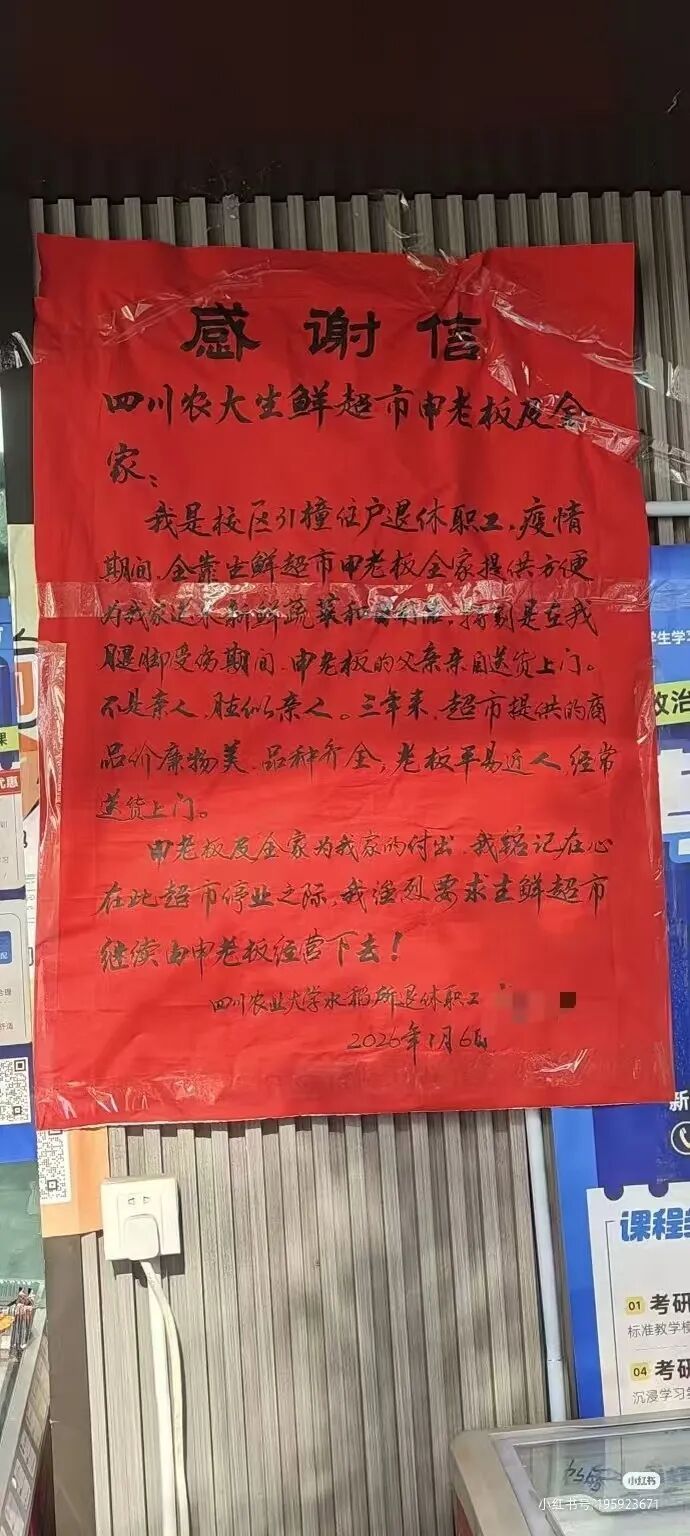 感谢信
四川农大生鲜超市申老板及全
家：
我是校区引撞住户退休职工，疫情
期间，全靠生鲜超市申老板全家提供方便
为我家送来新鲜蔬菜和 特别是在我
腿脚受伤期间，申老板的父亲亲自送货上门。
不是亲人，胜似亲人。三年来，超市提供的商
品价廉物美、品种齐全，老板平易近人，经常
送货上门。
申老板及全家为我家的付出，我铭记在心
在此超市停业之际，我强烈要求生鲜超市
继续由申老板经营下去！
四川农业大学水稻所退休职工
2026年1月6日
学生学习
政治
课
优惠
新
课程
01 考研
标准教学模
04 考研
沉浸学习
小红书
小红书号:195923671